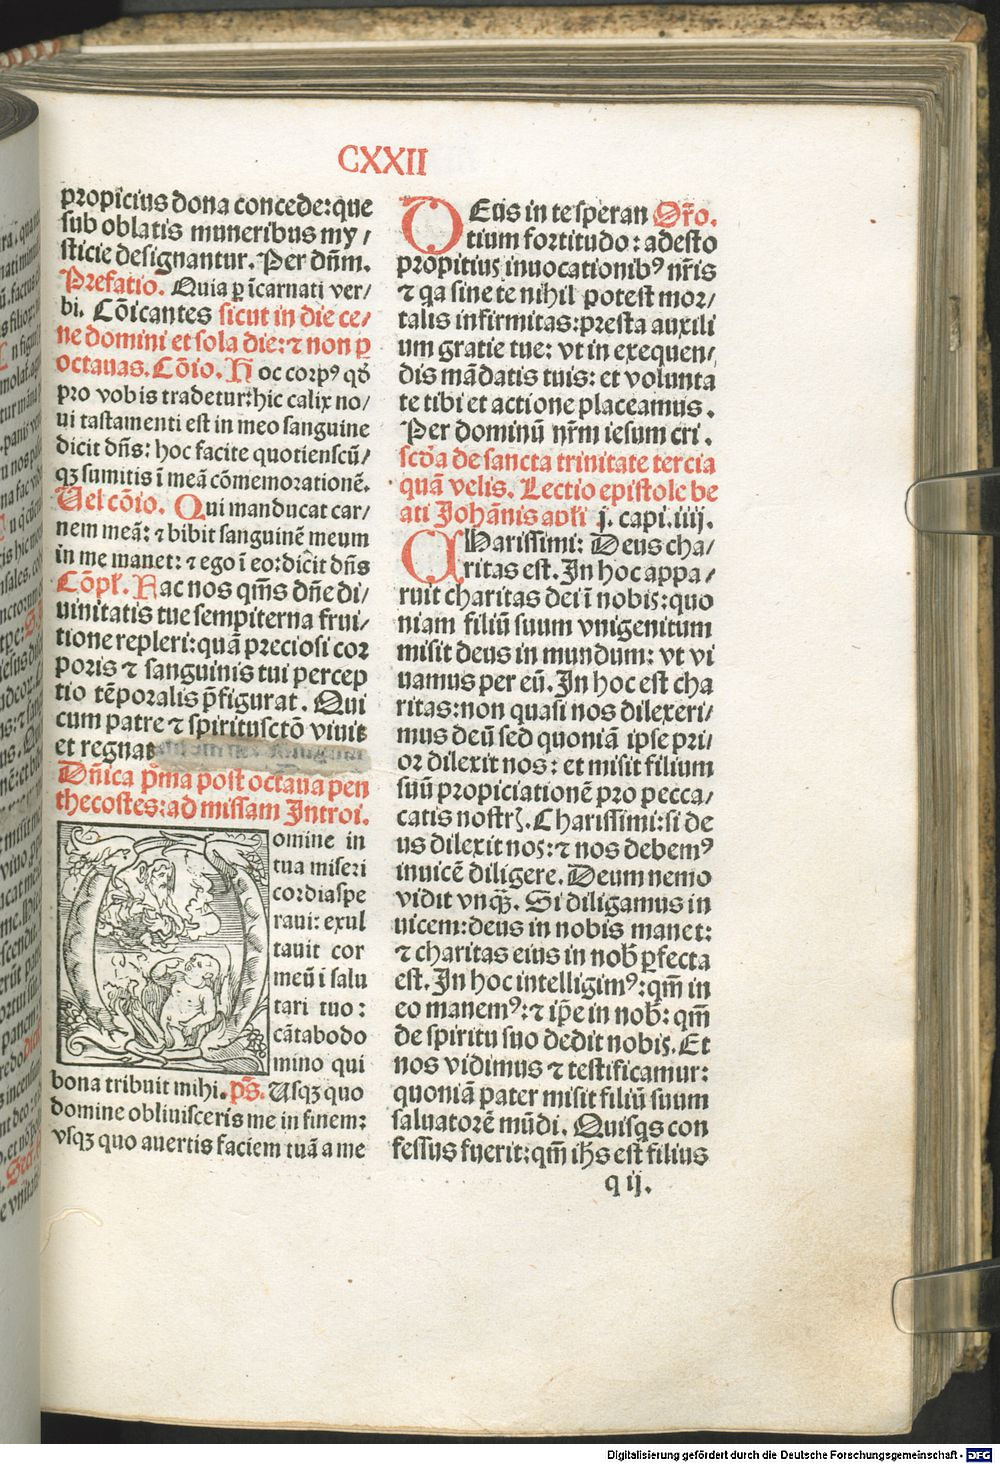 CXXII
propicius dona concede: que
sub oblatis muneribus my/
sticie designantur. Per dñm.
Prefatio. Quia p̲ ĩcarnati ver/
bi. Cõicantes sicut in die ce/
ne domini et sola die: ⁊ non p̲
octauas. Cõio. Hoc corpꝰ qḋ
pro vobis tradetur: hic calix no/
ui tastamenti est in meo sanguine
dicit dñs: hoc facite quotienscũ/
qꝫ sumitis ĩ meã cõmemorationẽ.
Uel cõio. Qui manducat car/
nem meã: ⁊ bibit sanguinẽ meum
in me manet: ⁊ ego ĩ eo: dicit dñs
Cõpł. Fac nos qm̃s dñe di/
uinitatis tue sempiterna frui/
tione repleri: quã preciosi cor
poris ⁊ sanguinis tui percep
tio tẽporalis p̃figurat. Qui
cum patre ⁊ spiritusctõ viuit
et regnat
Dñica p̃ma post octaua pen
thecostes: ad missam Introi.
omine in
tua miseri
cordia spe
raui: exul
tauit cor
meũ i salu
tari tuo:
cãtabo do
mino qui
bona tribuit mihi. p̃s. Usqꝫ quo
domine obliuisceris me in finem:
vsqꝫ quo auertis faciem tuã a me
DEus in te speran Or̃o.
tium fortitudo: adesto
propitius inuocationibꝰ nr̃is
⁊ qa sine te nihil potest mor/
talis infirmitas: presta auxili
um gratie tue: vt in exequen/
dis mãdatis tuis: et volunta
te tibi et actione placeamus.
Per dominũ nr̃m iesum cri.
scḋa de sancta trinitate tercia
quã velis. Lectio epistole be
ati Johãnis apłi j. capi. iiij.
CHarissimi: Deus cha/
ritas est. In hoc appa/
ruit charitas dei ĩ nobis: quo
niam filiũ suum vnigenitum
misit deus in mundum: vt vi
uamus per eũ. In hoc est cha
ritas: non quasi nos dilexeri/
mus deũ sed quoniã ipse pri/
or dilexit nos: et misit filium
suũ propiciationẽ pro pecca/
catis nostrꝭ. Charissimi: si de
us dilexit nos: ⁊ nos debemꝰ
inuicẽ diligere. Deum nemo
vidit vnqꝫ̃. Si diligamus in
uicem: deus in nobis manet:
⁊ charitas eius in nob̃ p̲fecta
est. In hoc intelligimꝰ: qm̃ in
eo manemꝰ: ⁊ ip̃e in nob̃: qm̃
de spiritu suo dedit nobis. Et
nos vidimus ⁊ testificamur:
quoniã pater misit filiũ suum
saluatorẽ mũdi. Quisqs con
fessus fuerit: qm̃ ih̃s est filius
q ij.
Digitalisierung gefördert durch die Deutsche Forschungsgemeinschaft - DFG